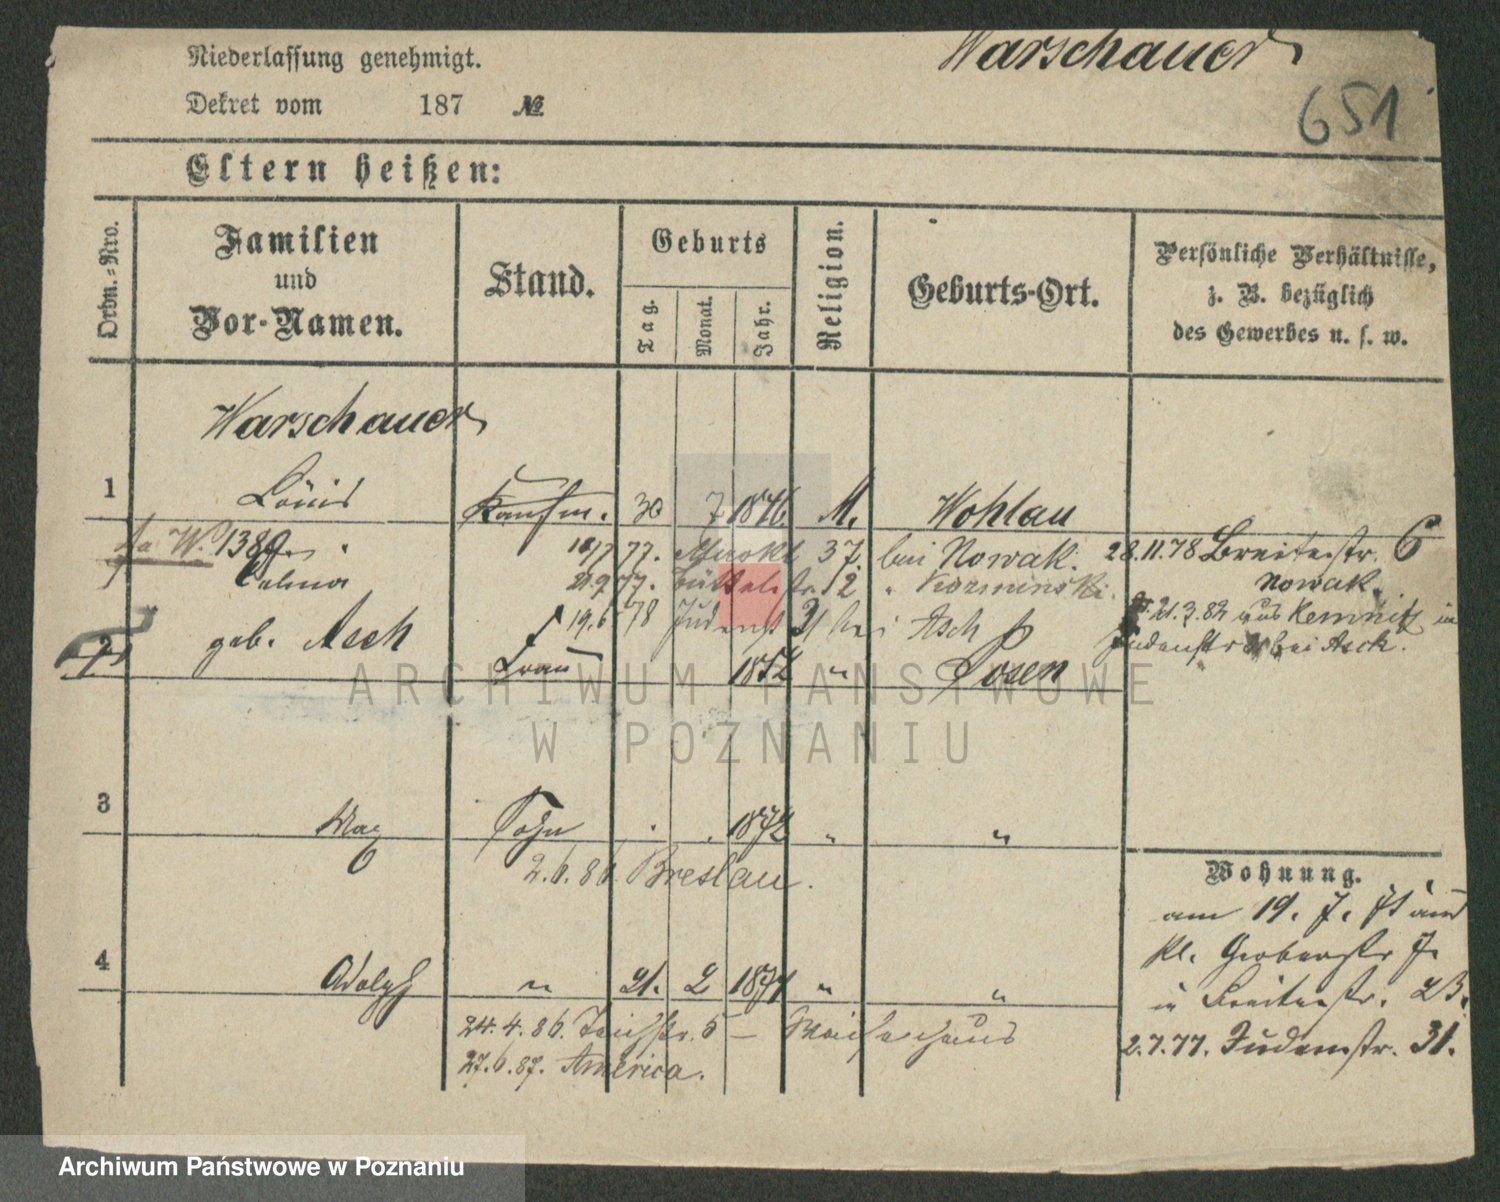 Niederlassung genehmigt.
Warschauer
Dekret vom 187 №
651
Eltern heißen:
Ordn.-Nro.
Familien und Vor-Namen.
Stand.
Geburts
Tag.
Monat.
Jahr.
Religion.
Geburts-Ort.
Persönliche Verhältnisse,
z. B. bezüglich
des Gewerbes u. s. w.
Warschauer
1 Louis Kaufm. 30 7 1846 M. Wohlau
W. 1389. 77. Markt 37. bei Nowak. 28.11.78 Breitestr. 6
77. Büttelstr. 12 " Kozminski. Nowak.
geb. Asch 19.6 78 Judenstr 31 bei Asch 21.3.82 aus Kemnitz in
Judenstr bei Asch.
2 Frau 1852 " Posen
3 Max Sohn . . 1872 " "
2.6.86. Breslau.
Wohnung.
am 19. 7.
kl. Gerberstr 7.
4 Adolph " 21. 2 1874 " "
in Breitestr. 23.
24.4.86. Teichstr. 5 — Waisenhaus
2.7.77. Judenstr. 31.
27.6.87. America.
ARCHIWUM PAŃSTWOWE
W POZNANIU
Archiwum Państwowe w Poznaniu